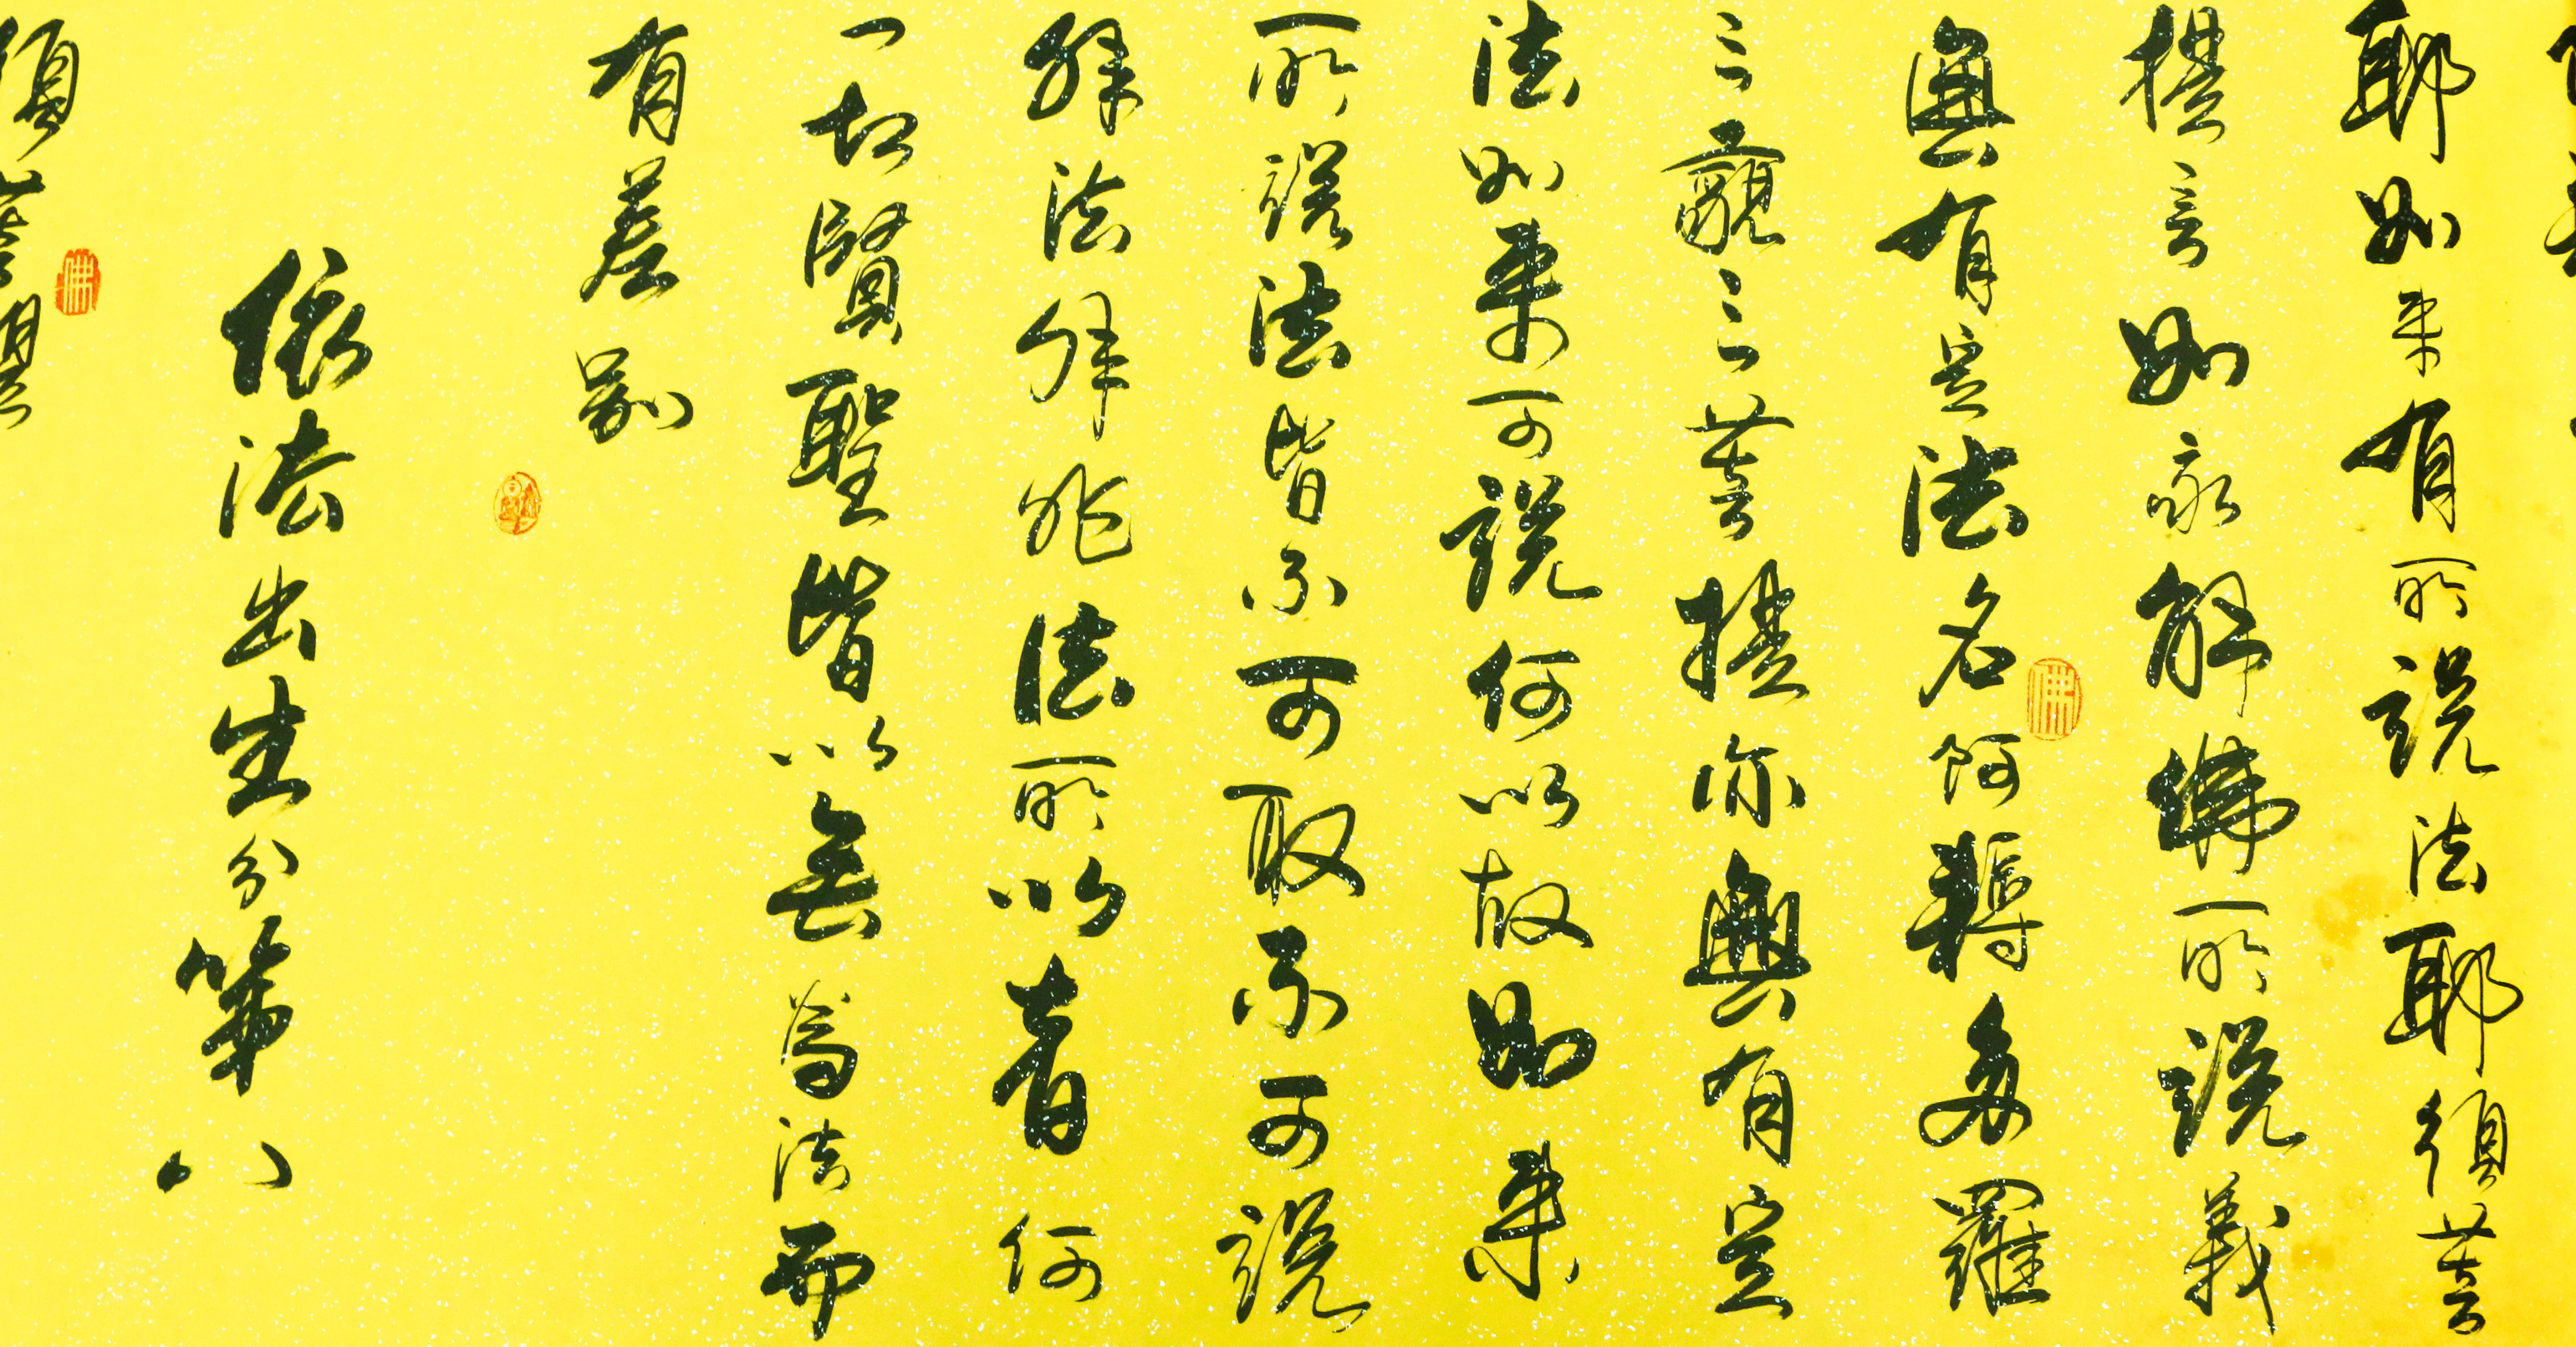 耶如來有所說法耶須菩
提言如我解佛所說義
無有定法名阿耨多羅
三藐三菩提亦無有定
法如來可說何以故如來
所說法皆不可取不可說
非法非非法所以者何
一切賢聖皆以無為法而
有差別
依法出生分第八
須菩